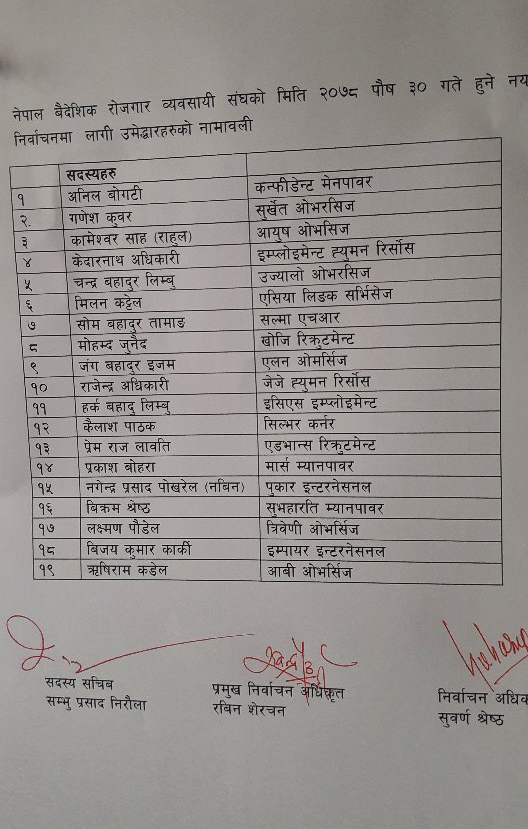 नेपाल बैदेशिक रोजगार व्यवसायी संघको मिति २०७८ पौष ३० गते हुने नय
निर्वाचनमा लागी उमेद्धारहरुको नामावली
सदस्यहरु
१ अनिल बोगटी कन्फीडेन्ट मेनपावर
२. गणेश कुवर सुर्खेत ओभरसिज
३ कामेश्वर साह (राहुल) आयुष ओभसिज
४ केदारनाथ अधिकारी इम्प्लोइमेन्ट ह्युमन रिर्सोस
५ चन्द्र बहादुर लिम्बु उज्यालो ओभरसिज
६ मिलन कट्टेल एसिया लिङक सर्भिसेज
७ सोम बहादुर तामाङ सल्मा एचआर
८ मोहम्द जुनैद खोजि रिक्रुटमेन्ट
९ जंग बहादुर इजम एलन ओर्भसिज
१० राजेन्द्र अधिकारी जेजे ह्युमन रिर्सोस
११ हर्क बहादु लिम्बु इसिएस इम्प्लोइमेन्ट
१२ कैलाश पाठक सिल्भर कर्नर
१३ प्रेम राज लावति एडभान्स रिक्रुटमेन्ट
१४ प्रकाश बोहरा मार्स म्यानपावर
१५ नगेन्द्र प्रसाद पोखरेल (नबिन) पुकार इन्टरनेसनल
१६ बिक्रम श्रेष्ठ सुभहारति म्यानपावर
१७ लक्ष्मण पौडेल त्रिवेणी ओभर्सिज
१८ बिजय कुमार कार्की इम्पायर इन्टरनेसनल
१९ ऋषिराम कडेल आबी ओभर्सिज
सदस्य सचिब प्रमुख निर्वाचन अधिकृत निर्वाचन अधिक
सम्भु प्रसाद निरौला रबिन शेरचन सुवर्ण श्रेष्ठ